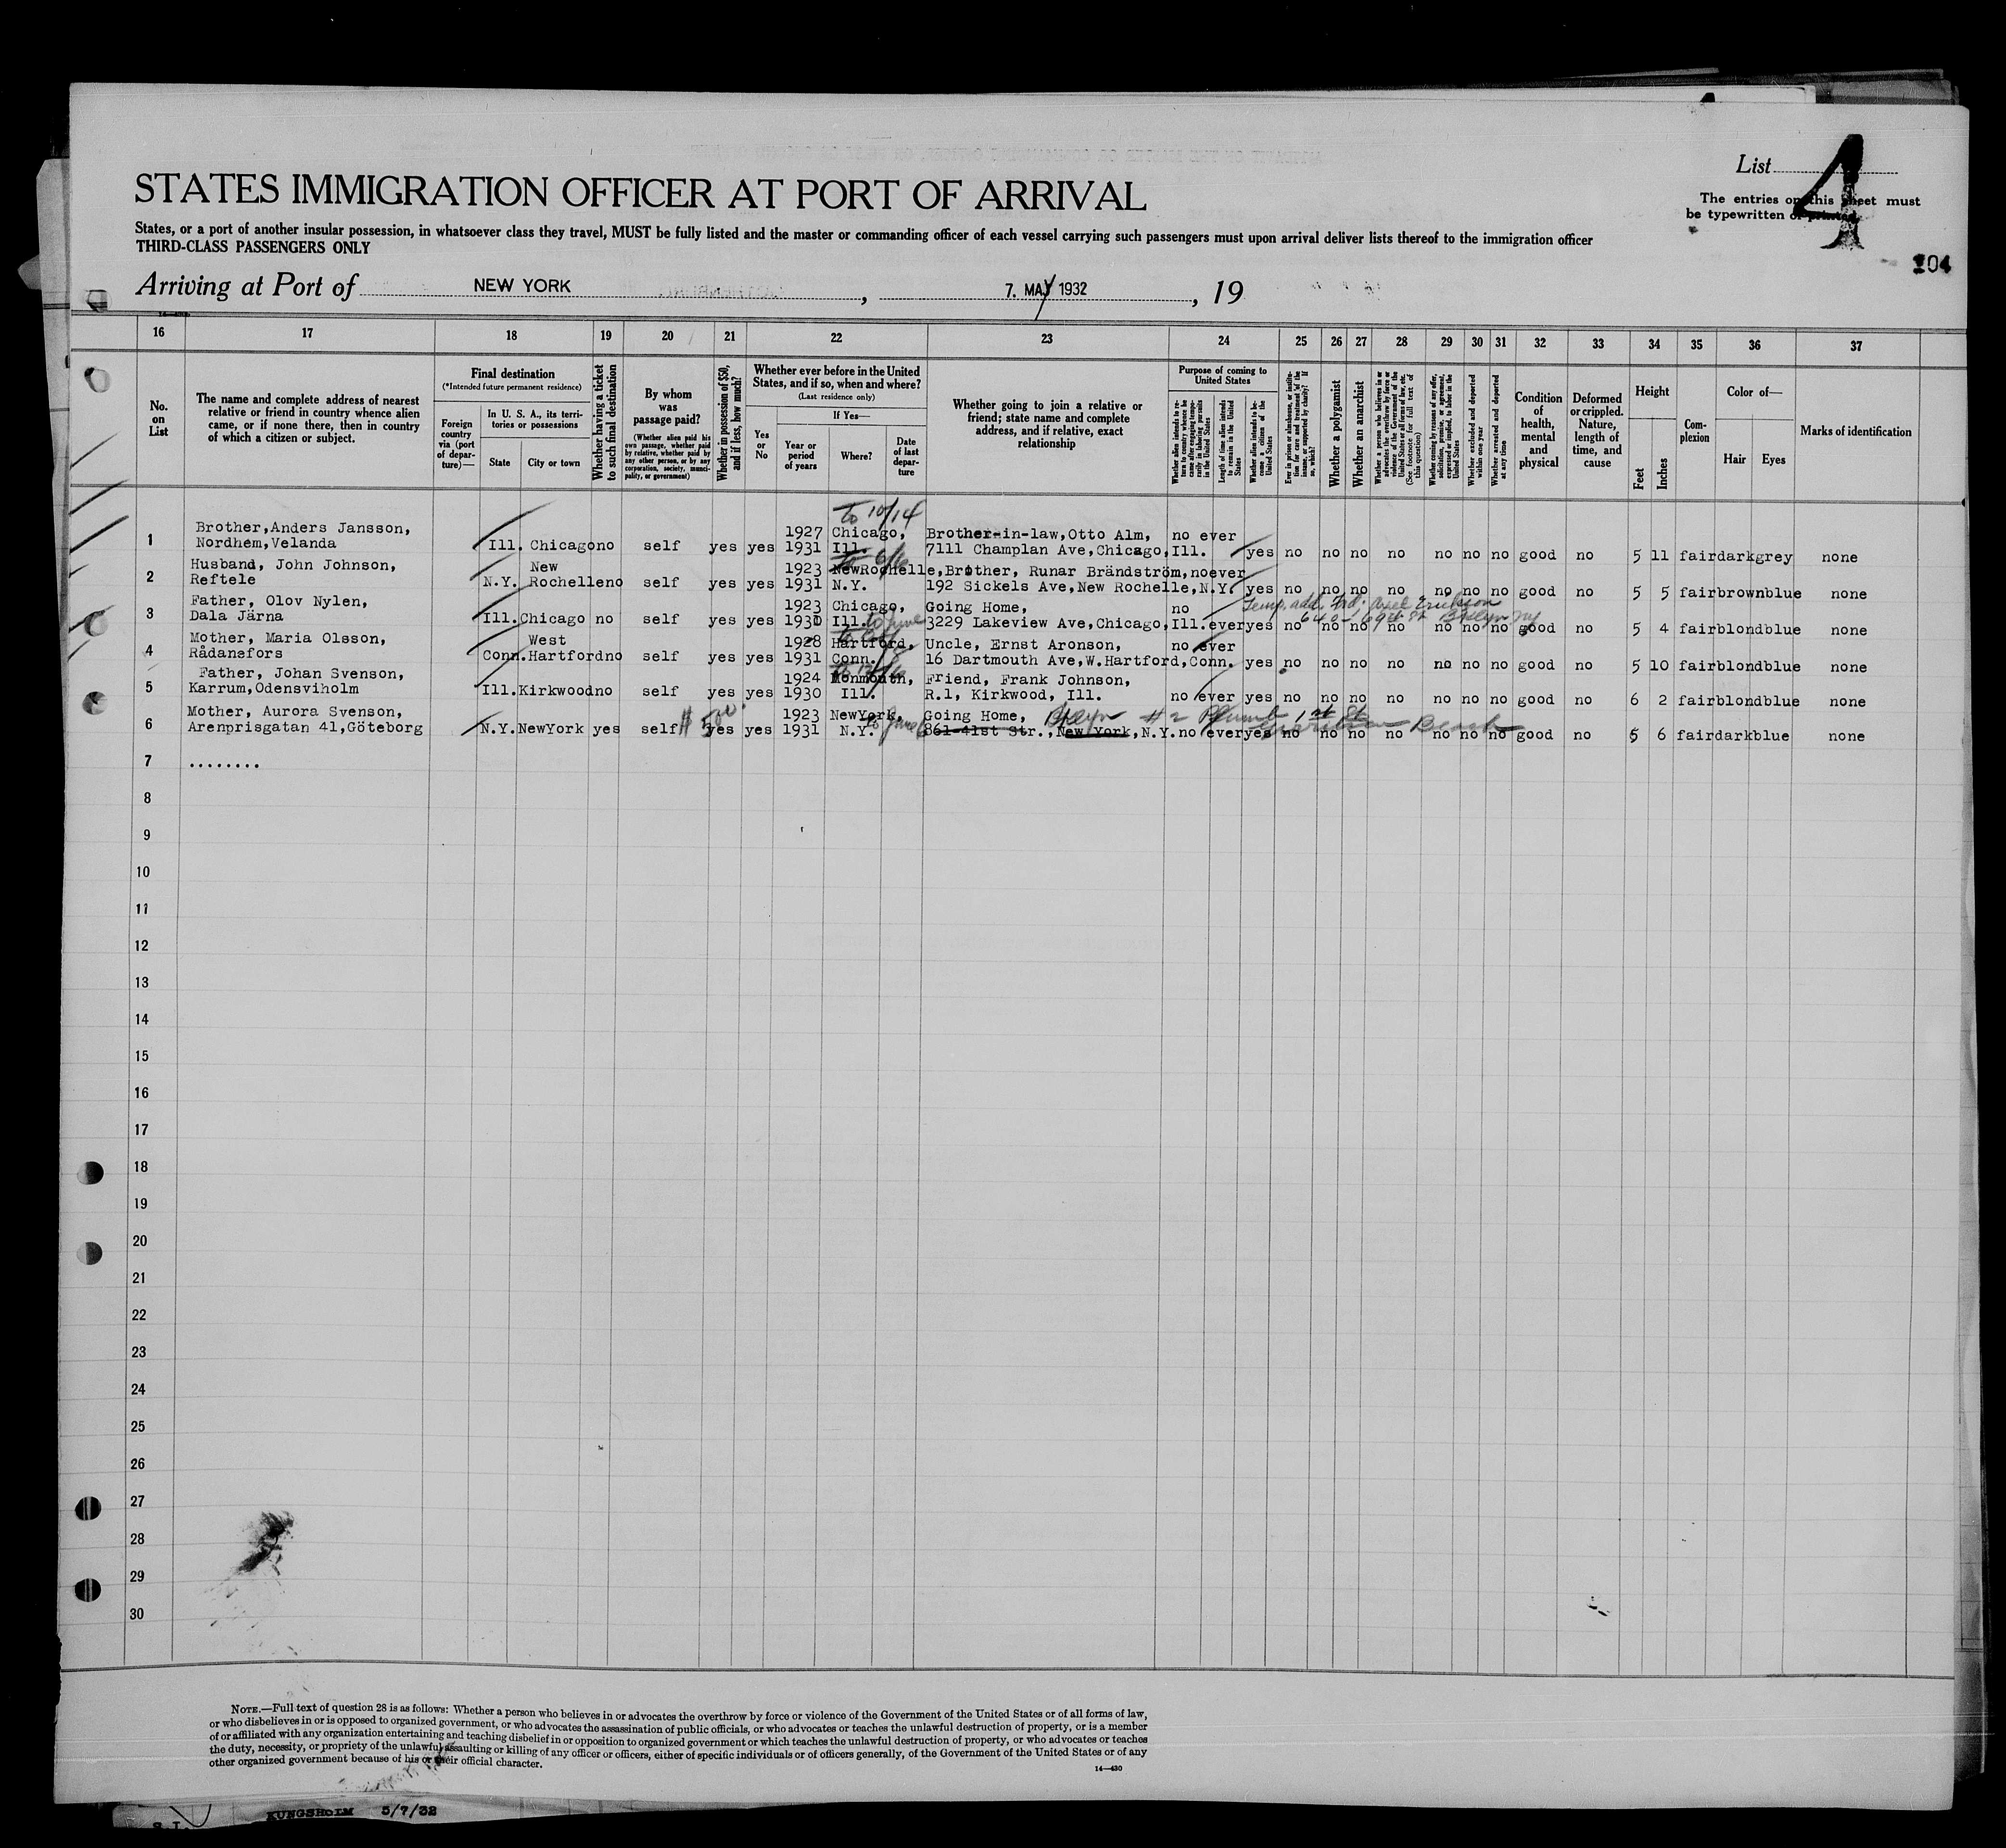 List 4
The entries on this sheet must
be typewritten or printed.
104
STATES IMMIGRATION OFFICER AT PORT OF ARRIVAL
States, or a port of another insular possession, in whatsoever class they travel, MUST be fully listed and the master or commanding officer of each vessel carrying such passengers must upon arrival deliver lists thereof to the immigration officer
THIRD-CLASS PASSENGERS ONLY
Arriving at Port of NEW YORK, 7. MAY 1932, 19
16 17 18 19 20 21 22 23 24 25 26 27 28 29 30 31 32 33 34 35 36 37
No. on List
The name and complete address of nearest
relative or friend in country whence alien
came, or if none there, then in country
of which a citizen or subject.
Final destination
(*Intended future permanent residence)
Foreign country via (port of departure)—
In U. S. A., its territories or possessions
State
City or town
Whether having a ticket to such final destination
By whom was passage paid?
(Whether alien paid his own passage, whether paid by relative, whether paid by any other person, or by any corporation, society, municipality, or government)
Whether in possession of $50, and if less, how much?
Whether ever before in the United States, and if so, when and where?
(Last residence only)
Yes or No
If Yes—
Year or period of years
Where?
Date of last departure
Whether going to join a relative or
friend; state name and complete
address, and if relative, exact
relationship
Purpose of coming to United States
Whether alien intends to return to country whence he came after engaging temporarily in laboring pursuits in the United States
Length of time alien intends to remain in the United States
Whether alien intends to become a citizen of the United States
Ever in prison or almshouse, or institution for care and treatment of the insane, or supported by charity? If so, which?
Whether a polygamist
Whether an anarchist
Whether a person who believes in or advocates the overthrow by force or violence of the Government of the United States or all forms of law, etc. (See footnote for full text of this question)
Whether coming by reason of any offer, solicitation, promise, or agreement, expressed or implied, to labor in the United States
Whether excluded and deported within one year
Whether arrested and deported at any time
Condition of health, mental and physical
Deformed or crippled. Nature, length of time, and cause
Height
Feet
Inches
Complexion
Color of—
Hair
Eyes
Marks of identification
to 10/14
Brother,Anders Jansson, 1927 Chicago, Brother-in-law,Otto Alm, no ever
1 Nordhem,Velanda Ill. Chicago no self yes yes 1931 Ill. 7111 Champlan Ave,Chicago,Ill. yes no no no no no no no good no 5 11 fair dark grey none
Husband, John Johnson, New 1923 NewRochelle, Brother, Runar Brändström, no ever
2 Reftele N.Y. Rochelle no self yes yes 1931 N.Y. 192 Sickels Ave,New Rochelle,N.Y. yes no no no no no no no good no 5 5 fair brown blue none
Father, Olov Nylen, 1923 Chicago, Going Home, no Temp. add. Frd: Axel Erickson
3 Dala Järna Ill. Chicago no self yes yes 1930 Ill. to June 3229 Lakeview Ave,Chicago,Ill. ever yes no no no no no no no good no 5 4 fair blond blue none
640-69th St Bklyn NY
Mother, Maria Olsson, West 1928 Hartford, Uncle, Ernst Aronson, no ever
4 Rådanefors Conn. Hartford no self yes yes 1931 Conn. 16 Dartmouth Ave,W.Hartford,Conn. yes no no no no no no no good no 5 10 fair blond blue none
Father, Johan Svenson, 1924 Monmouth, Friend, Frank Johnson,
5 Karrum,Odensviholm Ill. Kirkwood no self yes yes 1930 Ill. R.1, Kirkwood, Ill. no ever yes no no no no no no no good no 6 2 fair blond blue none
Mother, Aurora Svenson, 1923 NewYork, Going Home, Bklyn #2 Plumb 1st St
6 Arenprisgatan 41,Göteborg N.Y. NewYork yes self yes yes 1931 N.Y. 861-41st Str.,New York,N.Y. no ever yes no no no no no no no good no 5 6 fair dark blue none
7 ........
8
9
10
11
12
13
14
15
16
17
18
19
20
21
22
23
24
25
26
27
28
29
30
NOTE.—Full text of question 28 is as follows: Whether a person who believes in or advocates the overthrow by force or violence of the Government of the United States or of all forms of law,
or who disbelieves in or is opposed to organized government, or who advocates the assassination of public officials, or who advocates or teaches the unlawful destruction of property, or is a member
of or affiliated with any organization entertaining and teaching disbelief in or opposition to organized government or which teaches the unlawful destruction of property, or who advocates or teaches
the duty, necessity, or propriety of the unlawful assaulting or killing of any officer or officers, either of specific individuals or of officers generally, of the Government of the United States or of any
other organized government because of his or their official character.
14—430
KUNGSHOLM 5/7/32
S.I.